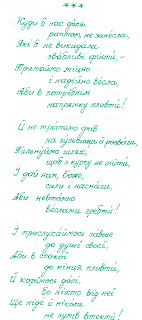 ***
Куди б нас доля
раптом, не занесла,
Які б не викидала
звабливі фінти, –
Тримаймо міцно
і надійно весла,
Аби в потрібнім
напрямку пливти!
Й не тратьмо днів
на гульбища й розваги,
Пильнуймо шлях,
щоб з курсу не зійти,
І дай нам, Боже,
сили і наснаги,
Аби невтомно
веслами гребти!
І прислухаймось завше
до душі своєї,
Аби в спокої
до кінця пливти,
Й карімось долі,
бо ніхто від неї
Ще ніде й ніколи
не зумів втекти!